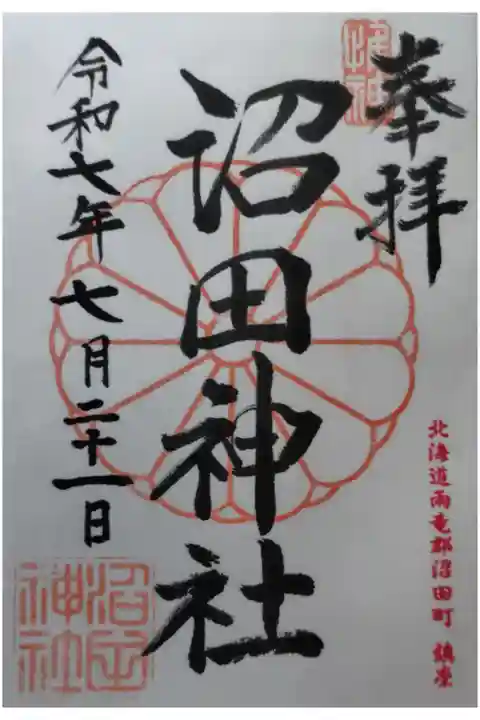 奉拝
沼田神社
令和七年七月二十一日
北海道雨竜郡沼田町 鎮座
沼田
神社